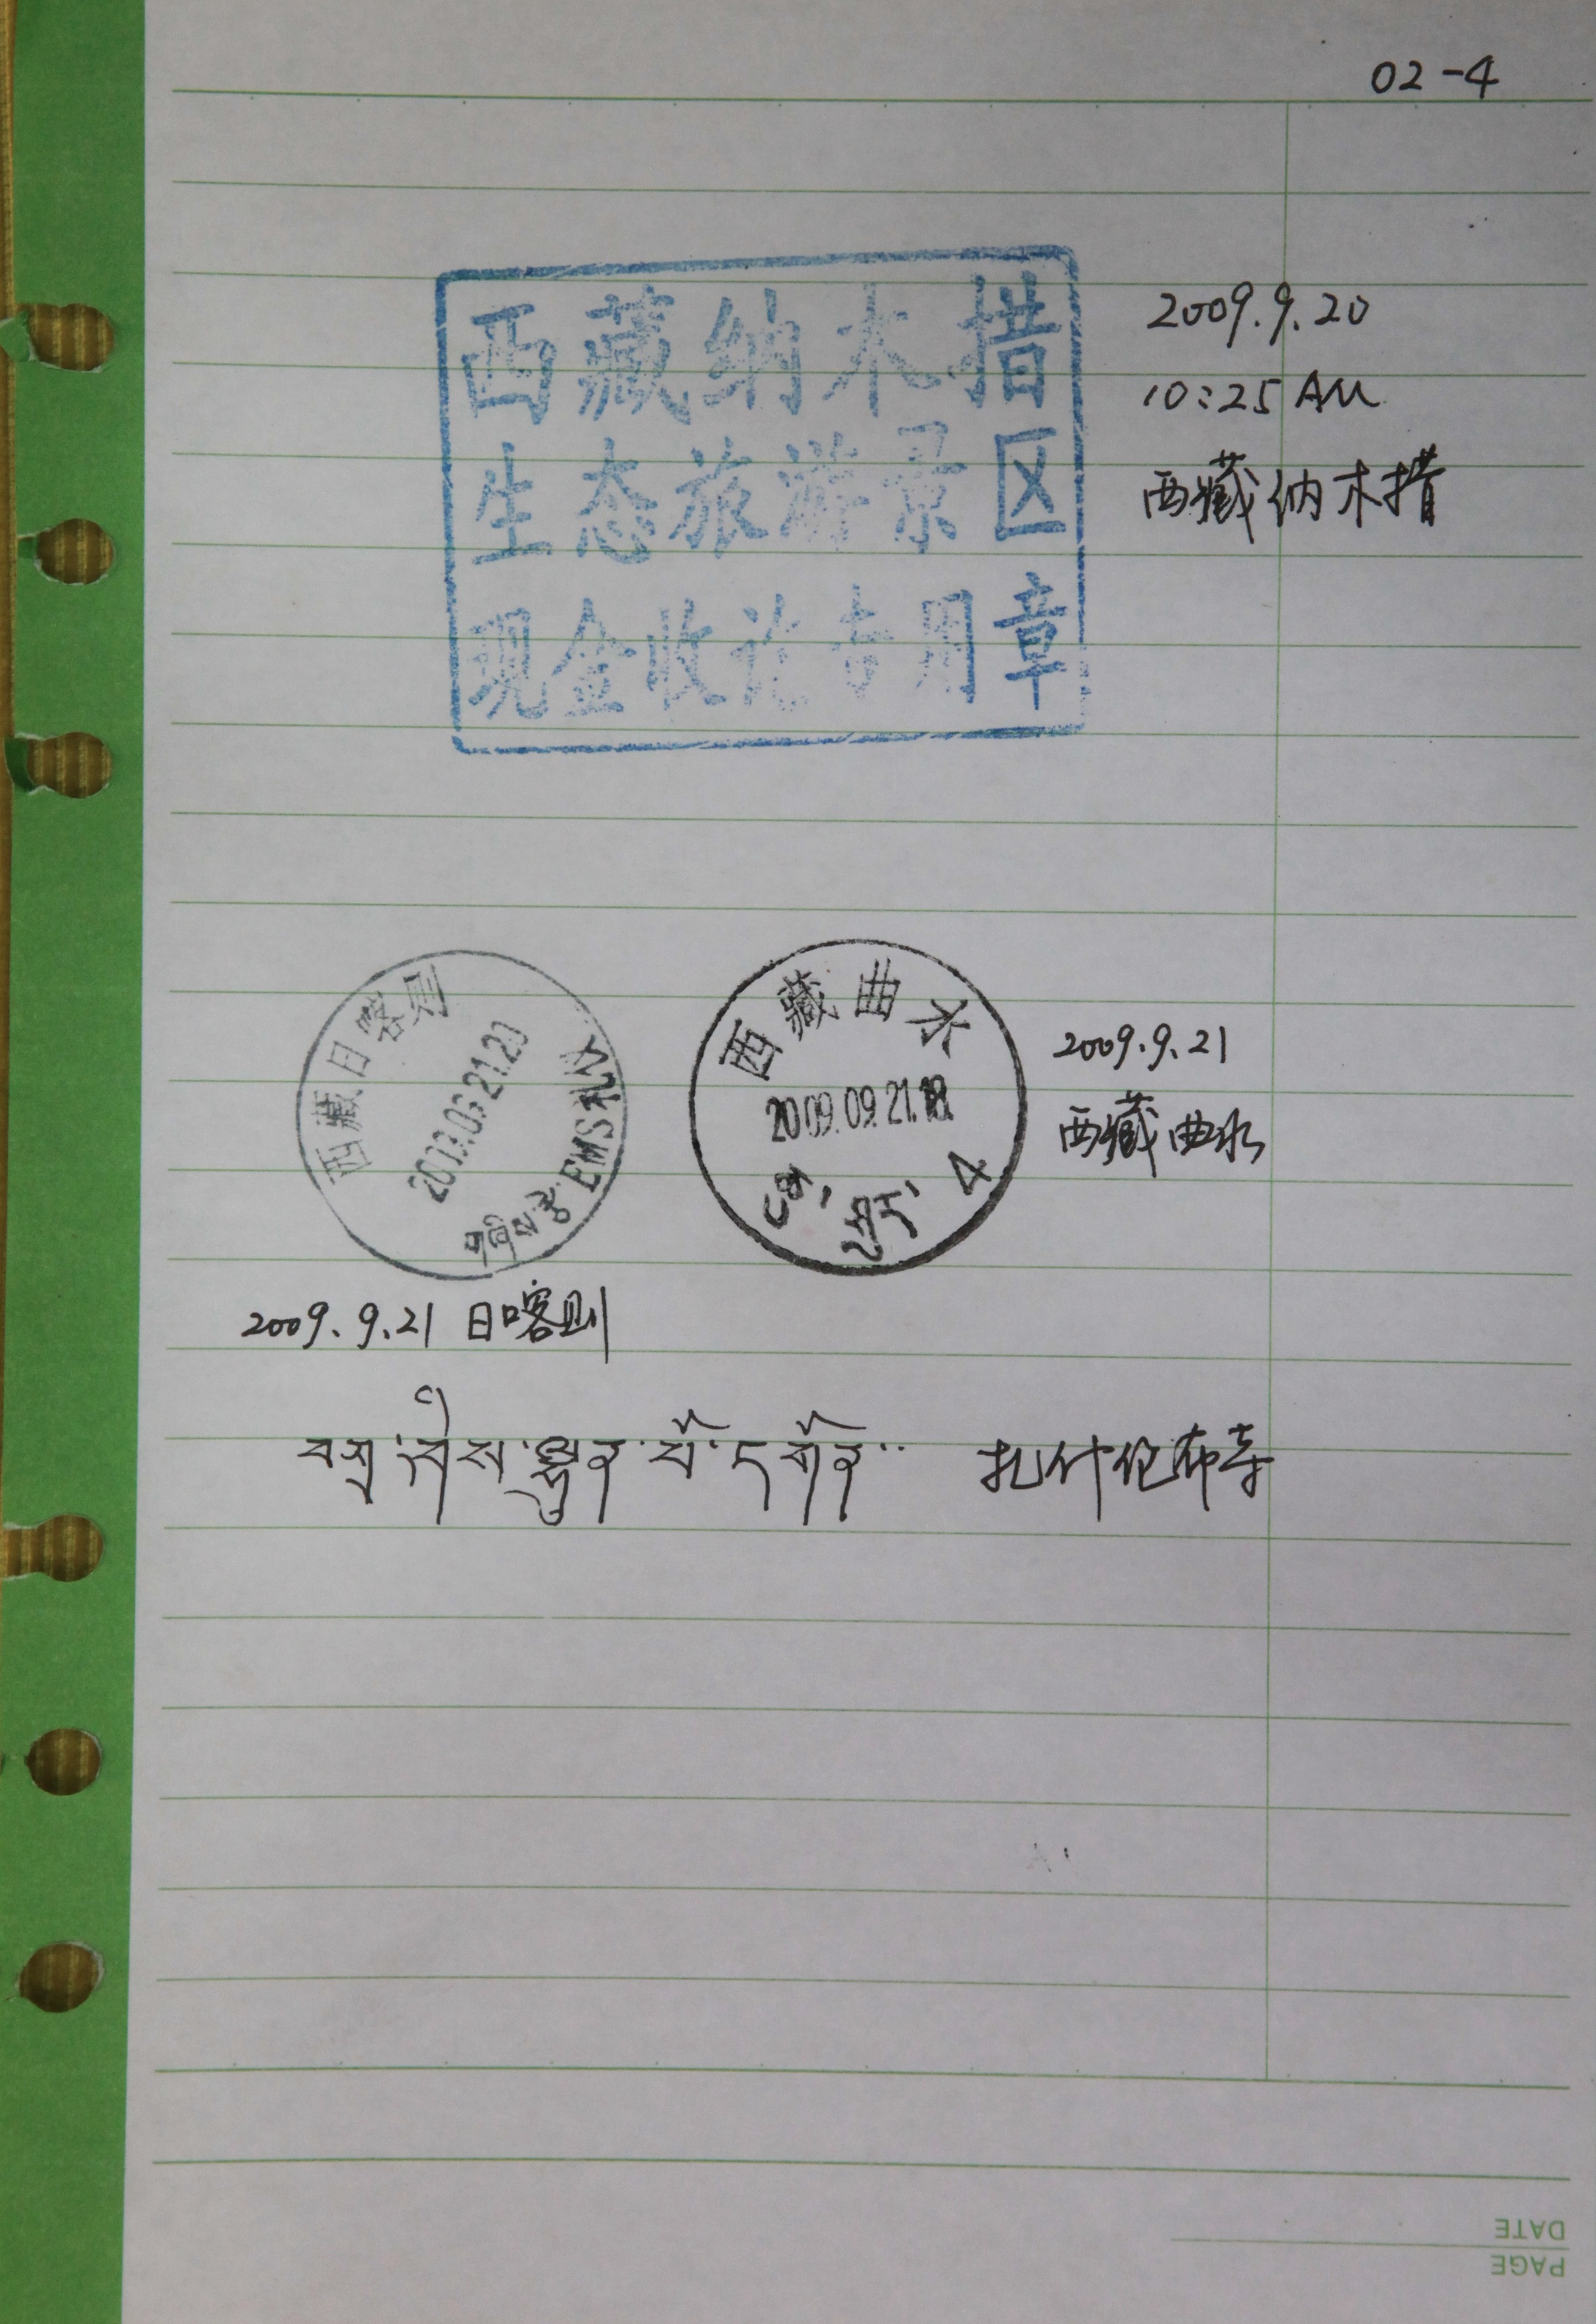 02-4
西藏纳木措
生态旅游景区
现金收讫专用章
2009.9.20
10:25 AM
西藏纳木措
西藏日喀则
21.20
EMS
西藏曲水
2009.09.21.18
ཆུ་ཤུར་ 4
2009.9.21
西藏曲水
2009.9.21 日喀则
བཀྲ་ཤིས་ལྷུན་པོ་དགོན་ 扎什伦布寺
DATE
PAGE